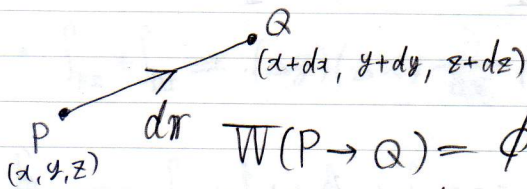 Q
(x+dx, y+dy, z+dz)
P
(x,y,z)
dr
W(P→Q) = ϕ